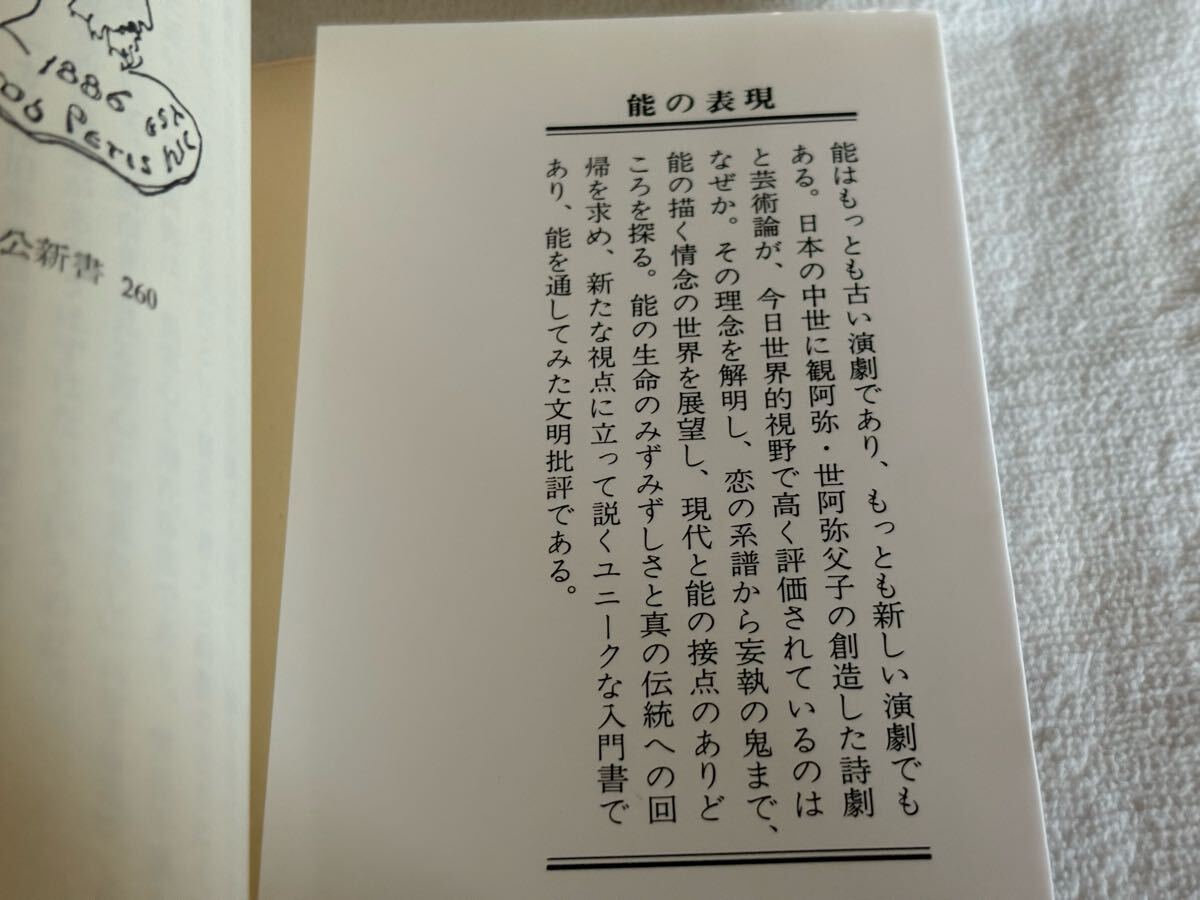 能の表現
能はもっとも古い演劇であり、もっとも新しい演劇でも
ある。日本の中世に観阿弥・世阿弥父子の創造した詩劇
と芸術論が、今日世界的視野で高く評価されているのは
なぜか。その理念を解明し、恋の系譜から妄執の鬼まで、
能の描く情念の世界を展望し、現代と能の接点のありど
ころを探る。能の生命のみずみずしさと真の伝統への回
帰を求め、新たな視点に立って説くユニークな入門書で
あり、能を通してみた文明批評である。
1886
公新書 260